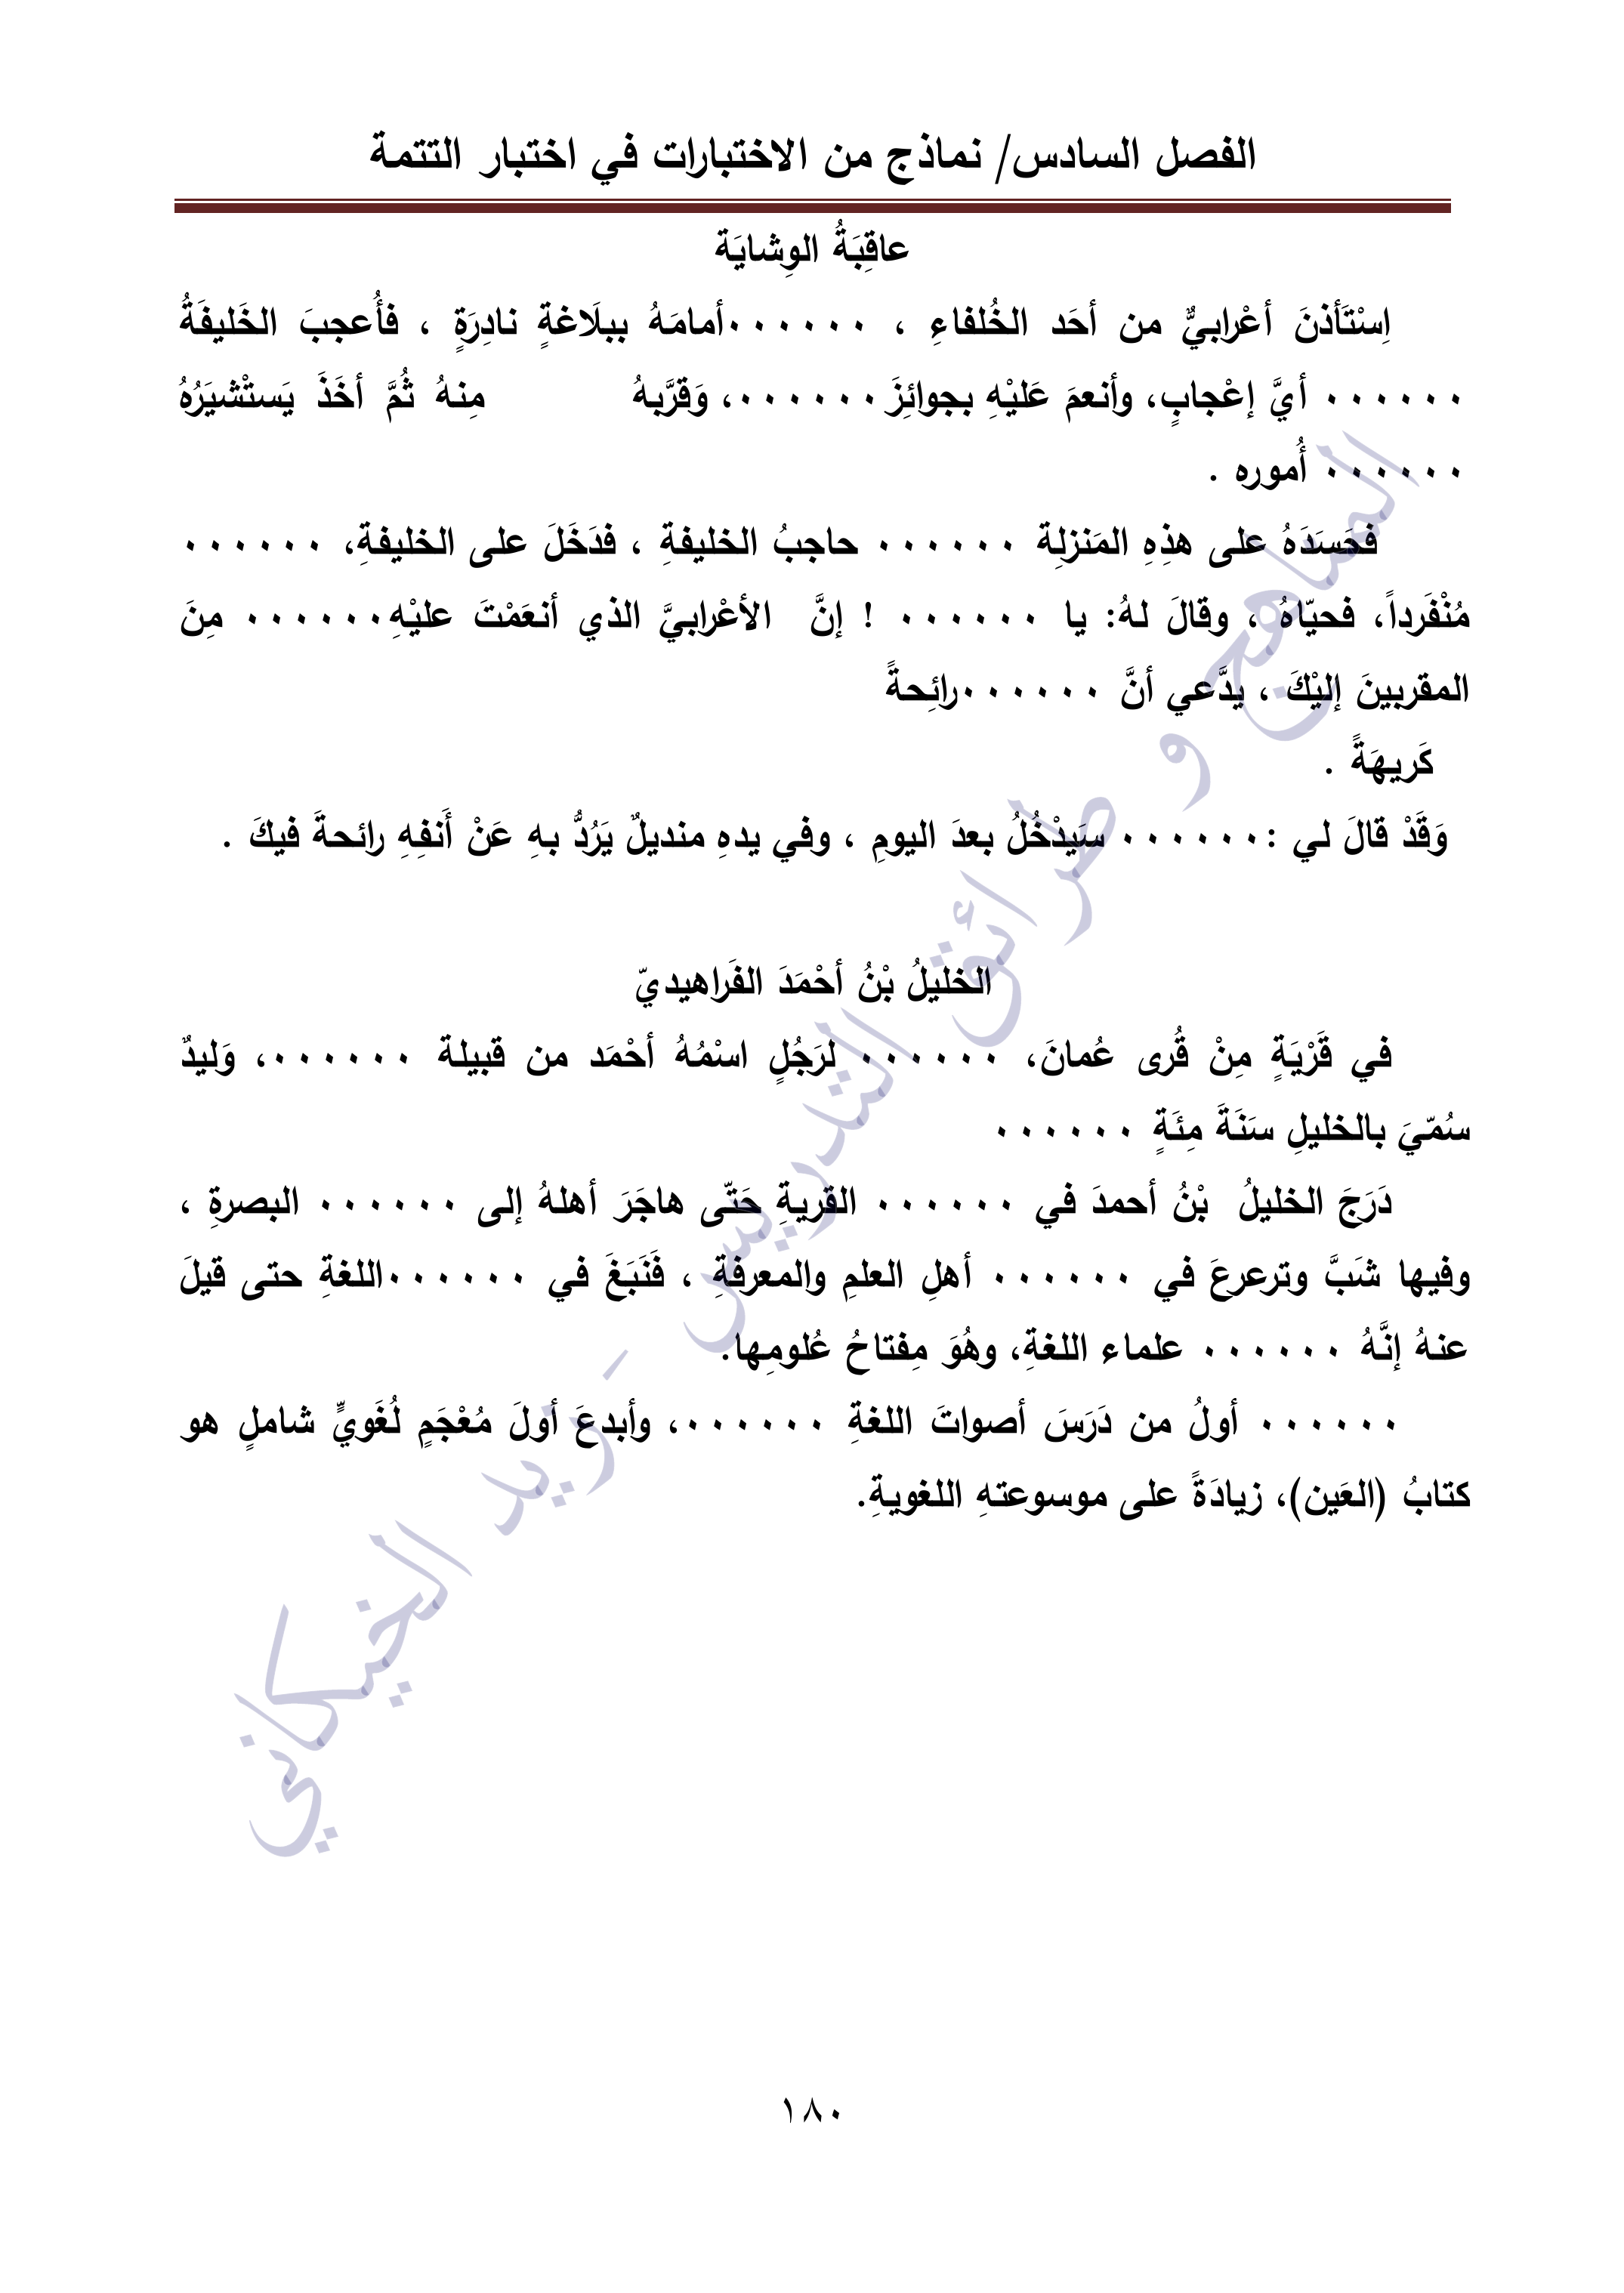 الفصل السادس/ نماذج من الاختبارات في اختبار التتمة
عاقِبَةُ الوِشايَة
اِسْتَأذنَ أعْرابيٌّ من أحَد الخُلفاءِ ، ٠٠٠٠٠٠أمامَهُ ببلَاغةٍ نادِرَةٍ ، فأُعجبَ الخَليفَةُ
٠٠٠٠٠٠ أيَّ إعْجابٍ، وأنعمَ عَليْهِ بجوائِزَ٠٠٠٠٠٠، وَقرَّبهُ مِنهُ ثُمَّ أخَذَ يَستْشيَرُهُ
٠٠٠٠٠٠ أُموره .
فحَسَدَهُ على هذِهِ المَنزلِة ٠٠٠٠٠٠ حاجبُ الخليفةِ ، فدَخَلَ على الخليفةِ، ٠٠٠٠٠٠
مُنْفَرداً، فحيّاهُ ، وقالَ لهُ: يا ٠٠٠٠٠٠ ! إنَّ الأعْرابيَّ الذي أنعَمْتَ عليْهِ٠٠٠٠٠٠ مِنَ
المقربينَ إليْكَ ، يدَّعي أنَّ ٠٠٠٠٠٠رائِحةً
كَريهَةً .
وَقَدْ قالَ لي :٠٠٠٠٠٠ سَيدْخُلُ بعدَ اليومِ ، وفي يدهِ منديلٌ يَرُدُّ بهِ عَنْ أَنفِهِ رائحةَ فيكَ .
الخليلُ بْنُ أحْمَدَ الفَراهيديّ
في قَرْيَةٍ مِنْ قُرى عُمانَ، ٠٠٠٠٠٠ لرَجُلٍ اسْمُهُ أحْمَد من قبيلة ٠٠٠٠٠٠، وَليدٌ
سُمّيَ بالخليلِ سَنَةَ مِئَةٍ ٠٠٠٠٠٠
دَرَجَ الخليلُ بْنُ أحمدَ في ٠٠٠٠٠٠ القريةِ حَتّى هاجَرَ أهلهُ إلى ٠٠٠٠٠٠ البصرةِ ،
وفيها شَبَّ وترعرعَ في ٠٠٠٠٠٠ أهلِ العلمِ والمعرفةِ ، فَنَبَغَ في ٠٠٠٠٠٠اللغةِ حتى قيلَ
عنهُ إنَّهُ ٠٠٠٠٠٠ علماء اللغةِ، وهُوَ مِفتاحُ عُلومِها.
٠٠٠٠٠٠ أولُ من دَرَسَ أصواتَ اللغةِ ٠٠٠٠٠٠، وأبدعَ أولَ مُعْجَمٍ لُغَويٍّ شاملٍ هو
كتابُ (العَين)، زيادَةً على موسوعتهِ اللغويةِ.
المناهج و طرائق التدريس - زيد الخيكاني
١٨٠